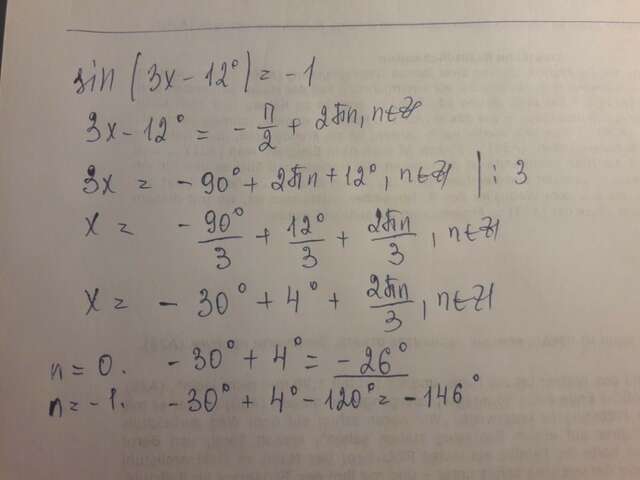 sin (3x - 12°) = -1
3x - 12° = - π/2 + 2πn, n∈Z
3x = - 90° + 2πn + 12°, n∈Z | : 3
x = - 90°/3 + 12°/3 + 2πn/3, n∈Z
x = - 30° + 4° + 2πn/3, n∈Z
n = 0. - 30° + 4° = - 26°
n = -1. - 30° + 4° - 120° = - 146°